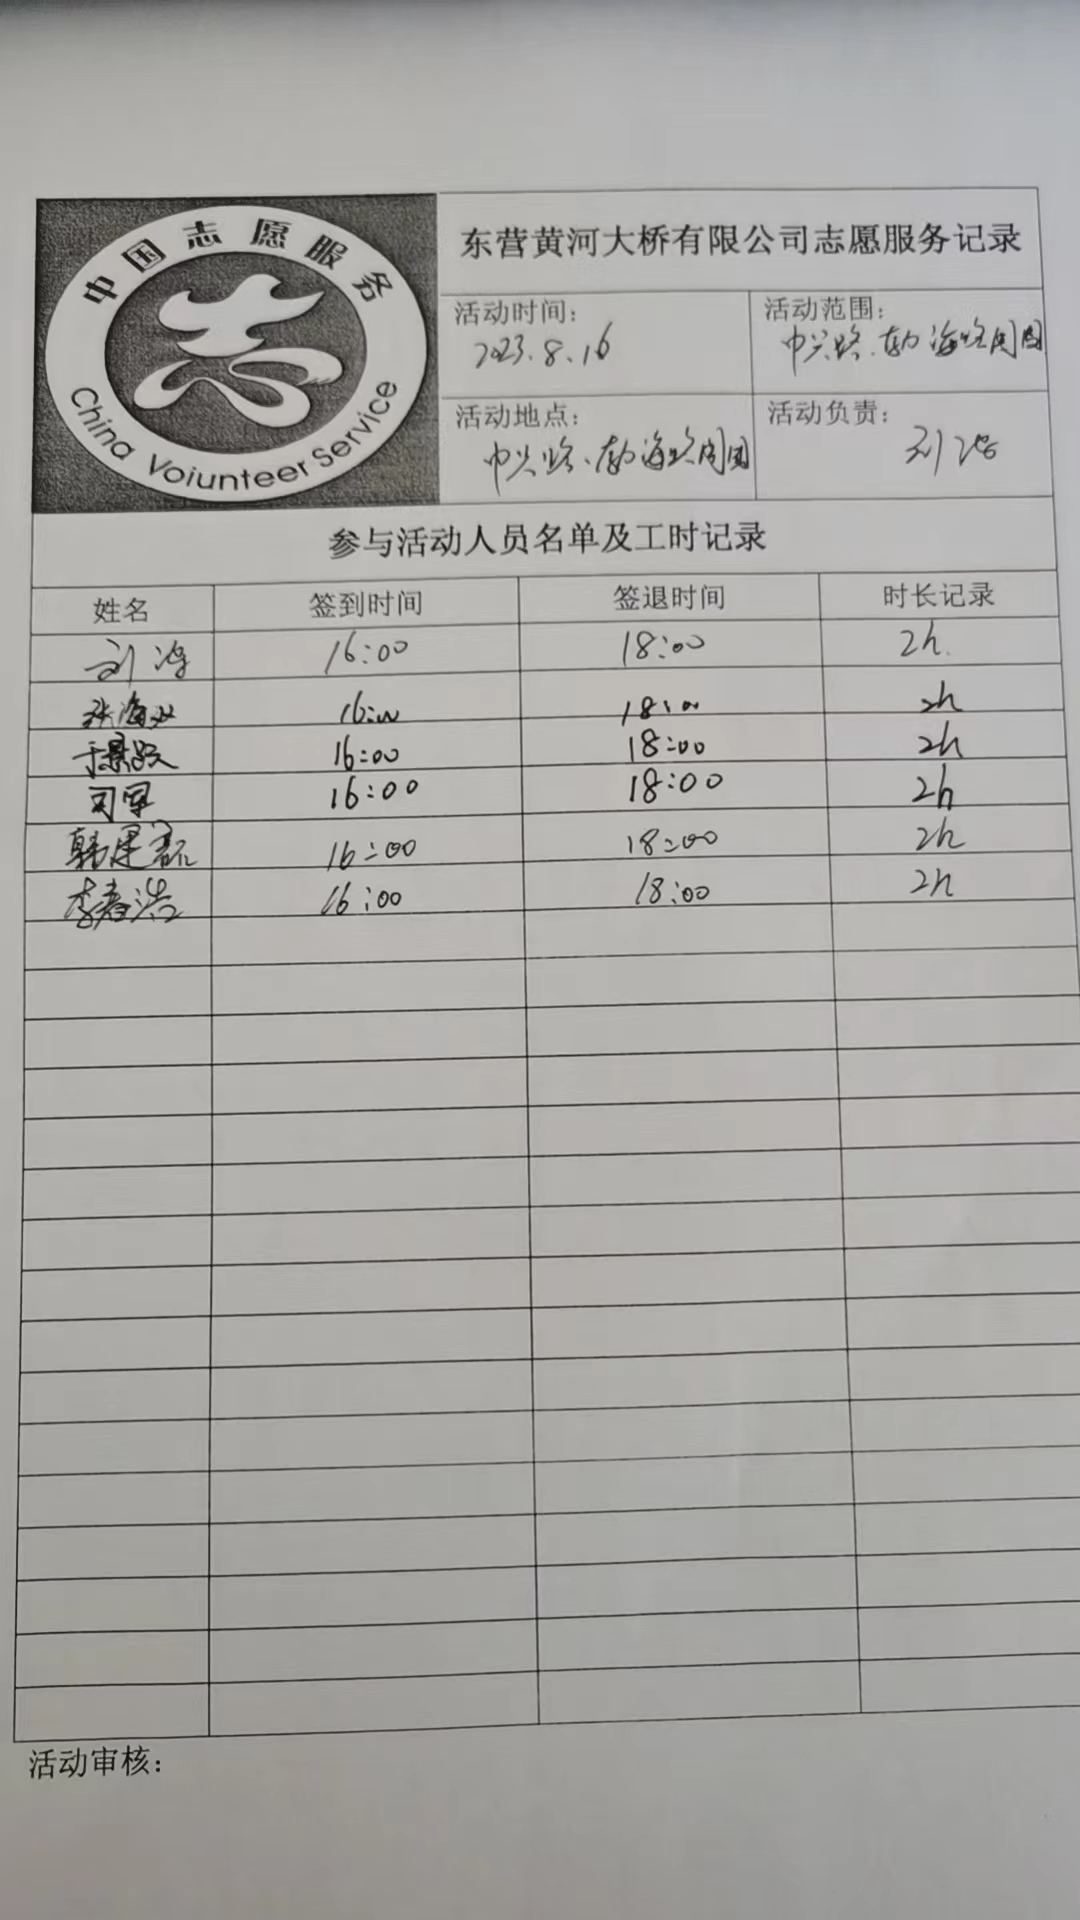 中国志愿服务
China Voiunteer Service
东营黄河大桥有限公司志愿服务记录
活动时间:
2023.8.16
活动范围:
中兴路、渤海路周围
活动地点:
中兴路、渤海路周围
活动负责:
刘
参与活动人员名单及工时记录
姓名 签到时间 签退时间 时长记录
刘 16:00 18:00 2h.
张海 16:00 18:00 2h
于景 16:00 18:00 2h
司军 16:00 18:00 2h
韩建磊 16:00 18:00 2h
李春浩 16:00 18:00 2h
活动审核: